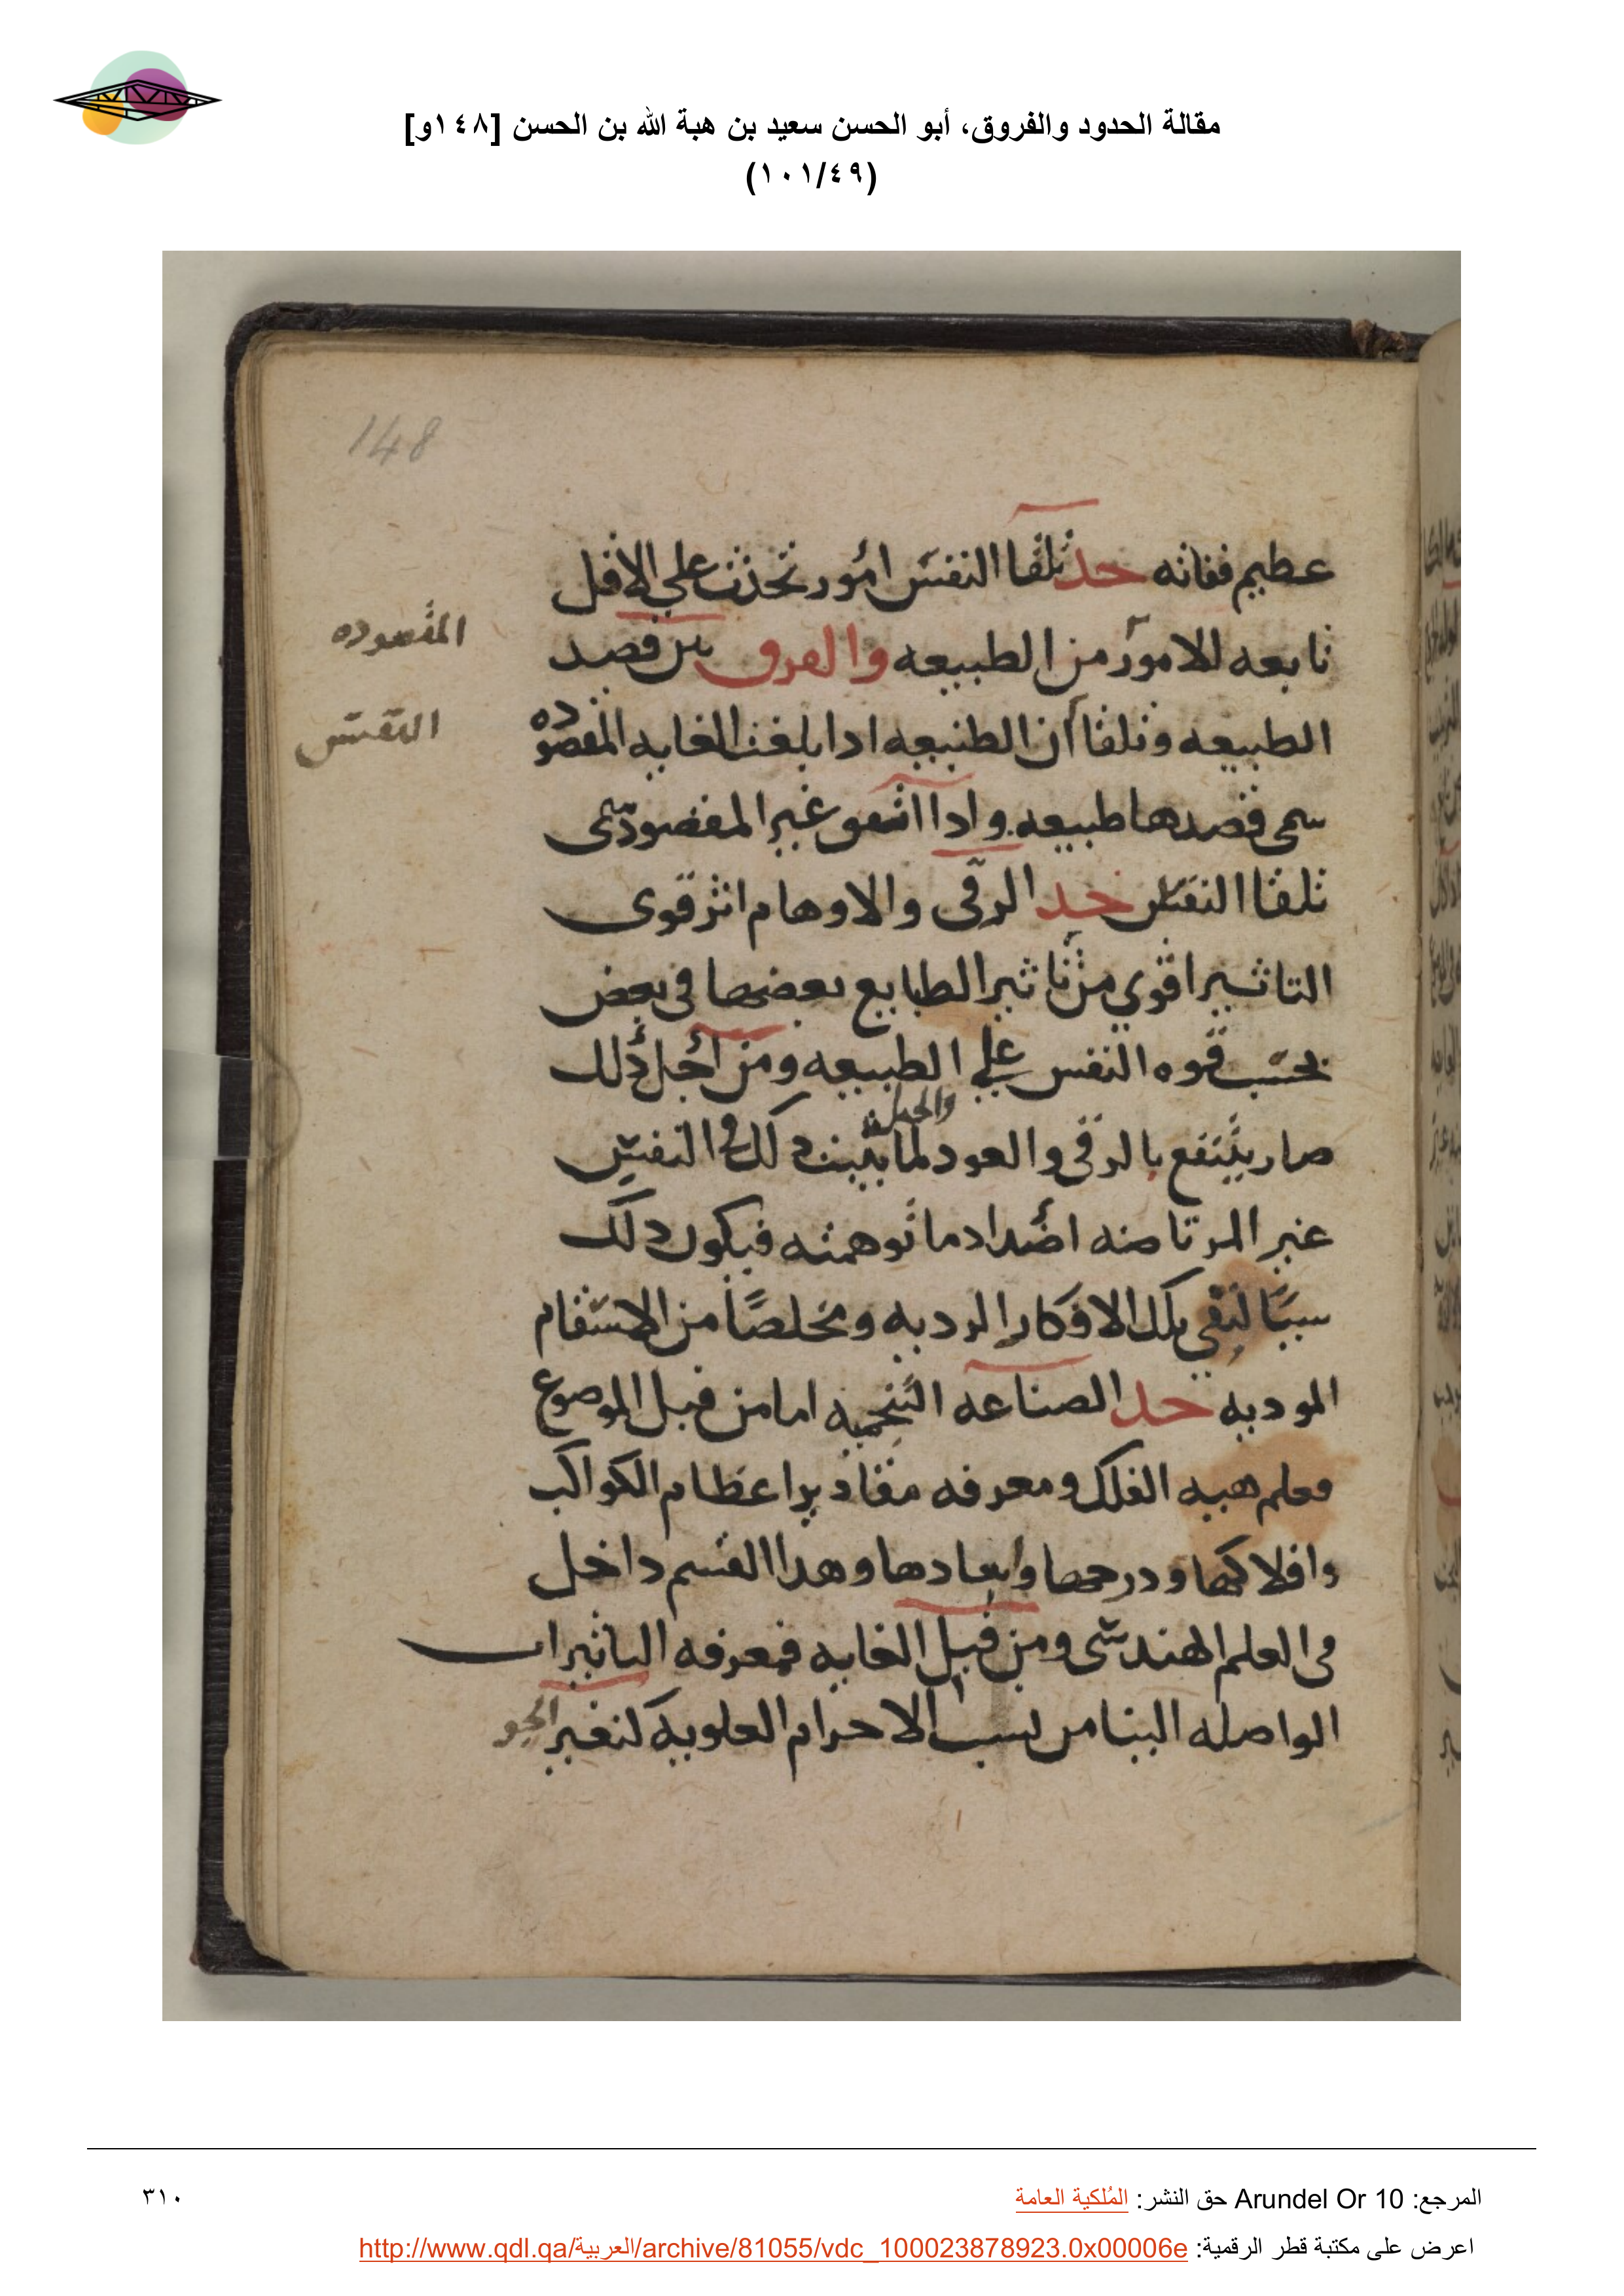 مقالة الحدود والفروق، أبو الحسن سعيد بن هبة الله بن الحسن [١٤٨و]
(١٠١/٤٩)
148
عظيم فغانه حد تلقا النفس امور تحدث على الاقل
تابعه للامور من الطبيعه والفرق بين قصد
المقصوده
الطبيعه وتلقا أن الطبيعه ادا بلغت الغايه المقصوده
النفس
سمى قصدها طبيعه وادا اتفق غير المقصود سمى
تلقا النفس حد الرقى والاوهام اثر قوى
التاثير اقوي من تاثير الطبايع بعضها فى بعض
بحسب قوه النفس على الطبيعه ومن أجل ذلك
والحيل
صار ينتفع بالرقى والعود لما يثبت دلك فى النفس
غير المرتاضه اضداد ما توهمته فيكون دلك
سببًا لنفى تلك الافكار الرديه ومخلصًا من الاسقام
الموديه حد الصناعه النجميه اما من قبل الموضوع
فعلم هيه الفلك ومعرفه مقادير اعظام الكواكب
وافلاكها ودرجها وابعادها وهدا القسم داخل
فى العلم الهندسى ومن قبل الغايه فمعرفه التاثيرات
الواصله الينا من نسب الاجرام العلويه كتغير الجو
المرجع: Arundel Or 10 حق النشر: المُلكية العامة
٣١٠
اعرض على مكتبة قطر الرقمية: http://www.qdl.qa/العربية/archive/81055/vdc_100023878923.0x00006e